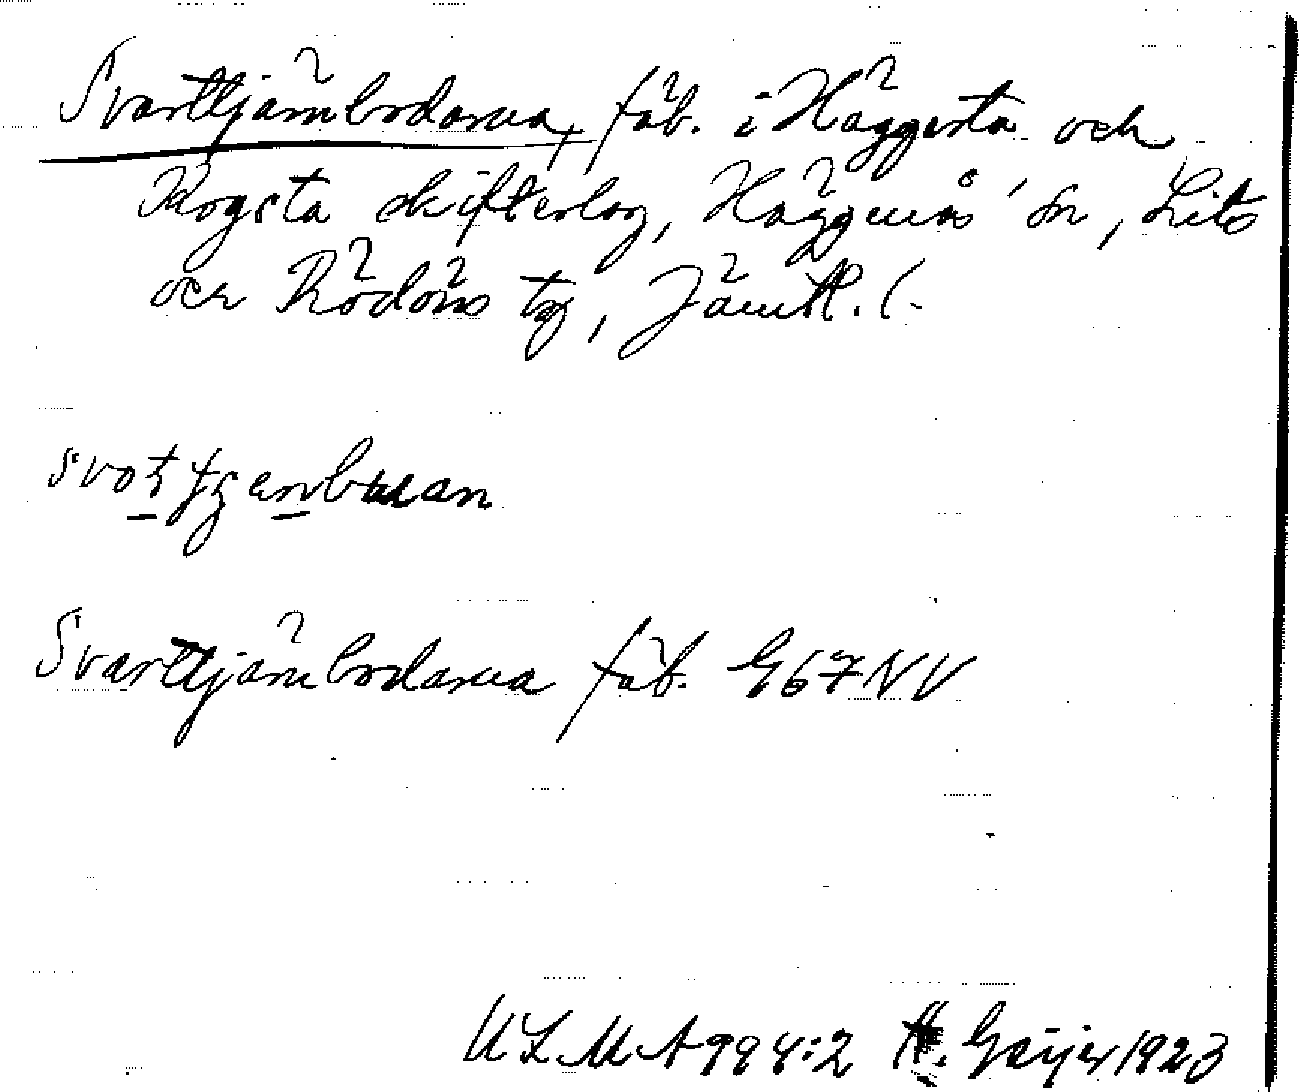 Svarttjärnbodarna, fäb. i Häggesta och
Kogsta skifteslag, Häggenås sn, Lits
och Rödöns tg, Jämtl. l.
Svarttjärnbodarna fäb. G67NV
ULMA 994:2 H. Geijer 1923